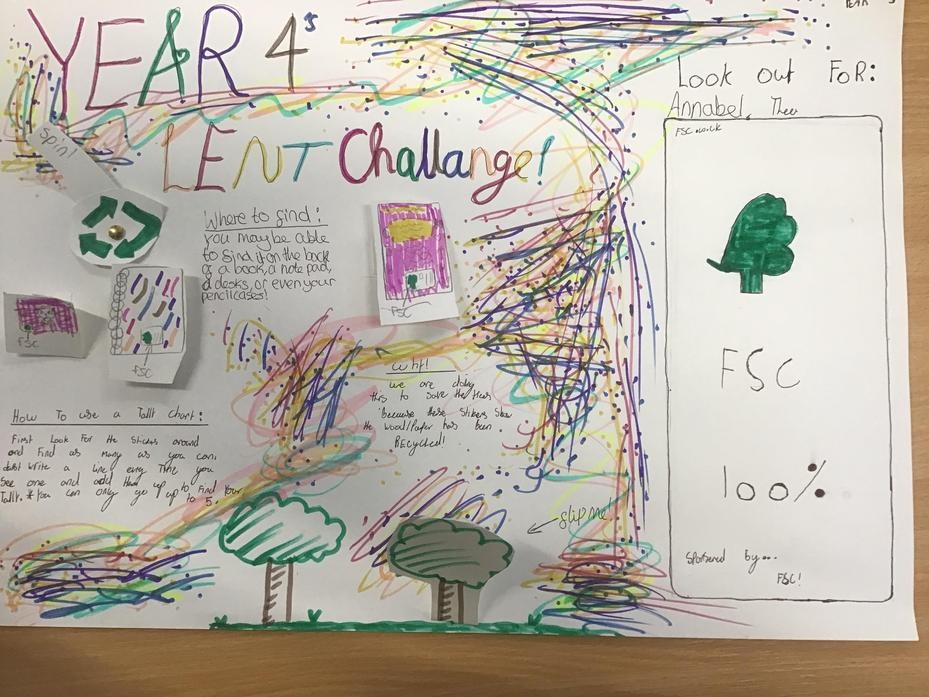 YEAR 4's
LENT Challange!
spin!
Where to find:
you may be able
to find it on the back
of a book, a note pad,
desks, or even your
pencilcases!
FSC
FSC
FSC
Why!
we are doing
this to save the trees
because these stikers show
the wood/paper has been
RECYcled!
How To use a Tally chart:
First Look For the Stickers around
and Find as many as you can,
Write a line every Time you
See one and add them up to Find Your
Tally.* You can only go up to 5.
flip me!
Look out FoR:
Annabel, Theo
FSC.co.uk
FSC
100%
Sponsered by...
FSC!